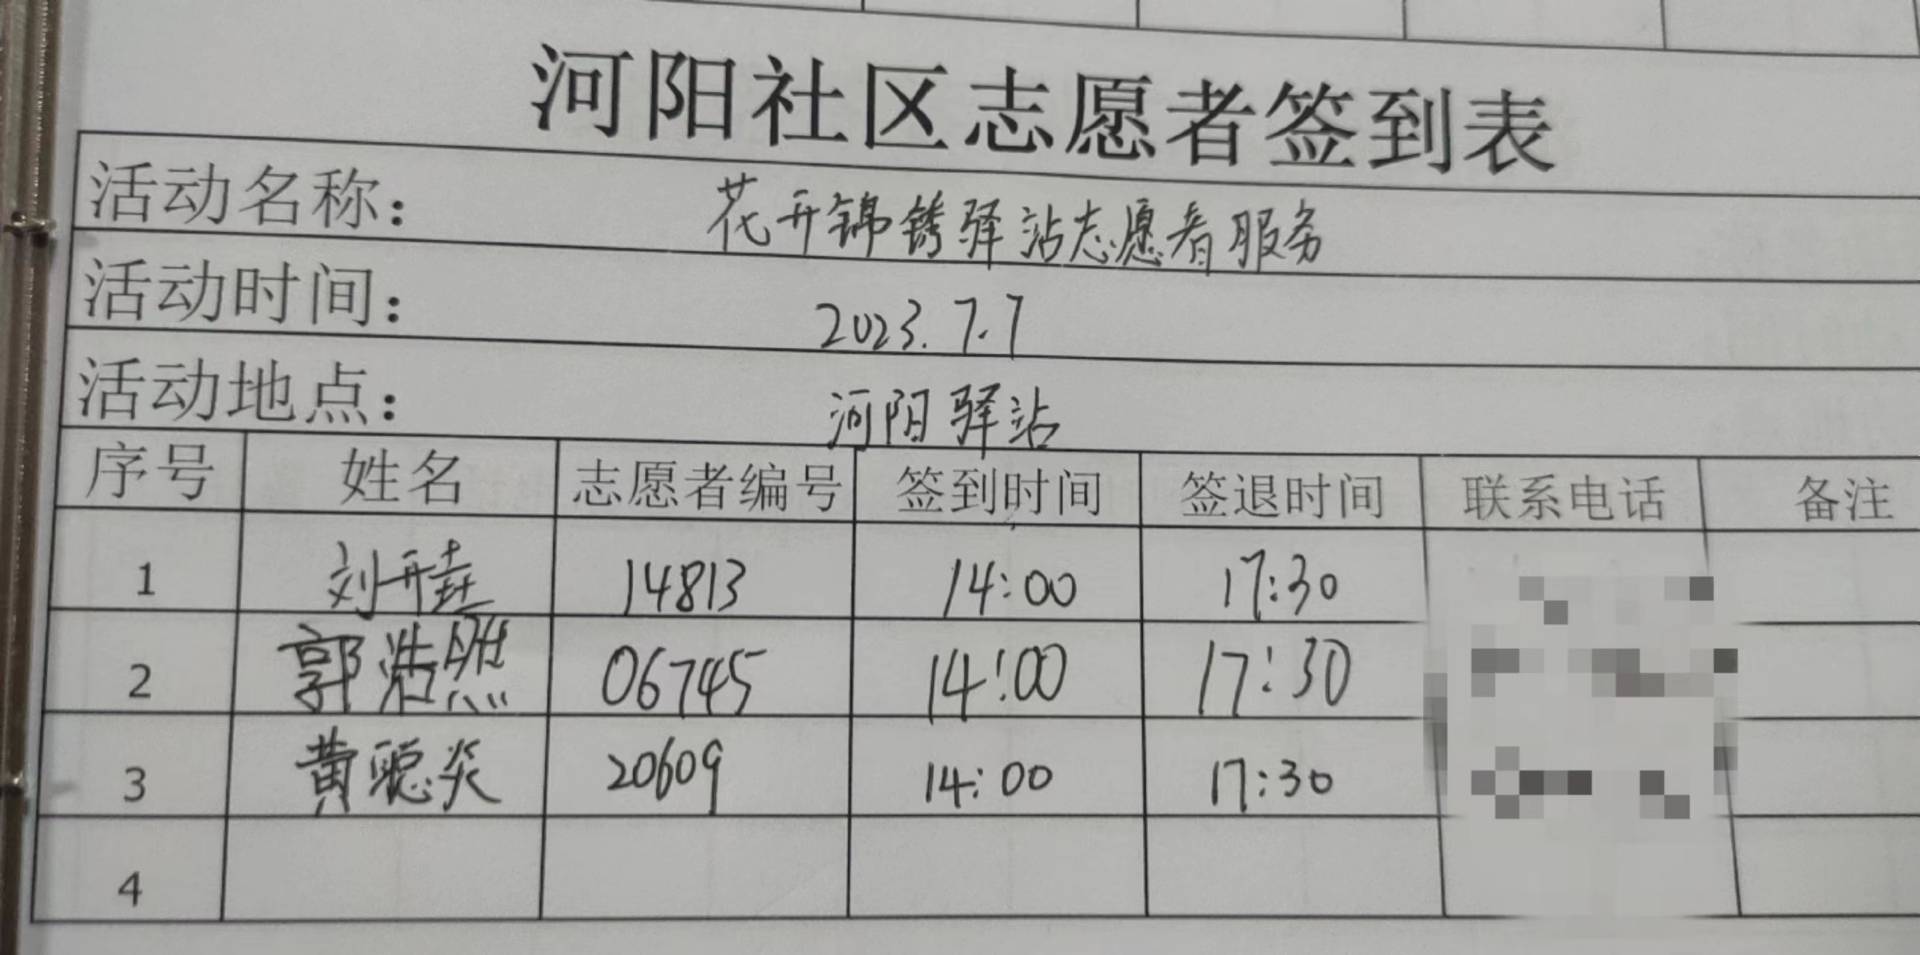 河阳社区志愿者签到表
活动名称： 花开锦绣驿站志愿者服务
活动时间： 2023.7.7
活动地点： 河阳驿站
序号 姓名 志愿者编号 签到时间 签退时间 联系电话 备注
1 刘开垚 14813 14:00 17:30
2 郭浩照 06745 14:00 17:30
3 黄聪炎 20609 14:00 17:30
4